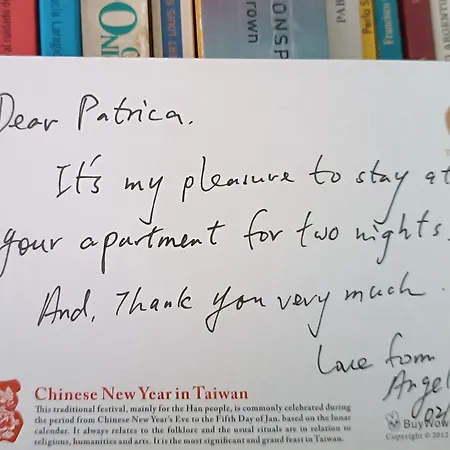 al cuidado de
CHINO
BERT LOUIS S
rown
ONSP
PAB
Perlo S
Francisco
ARGENTI
Dear Patrica.
It's my pleasure to stay at
your apartment for two nights.
And, Thank you very much.
Love from
Angel
02/
Chinese New Year in Taiwan
This traditional festival, mainly for the Han people, is commonly celebrated during
the period from Chinese New Year's Eve to the Fifth Day of Jan. based on the lunar
calendar. It always relates to the folklore and the usual rituals are in relation to
religions, humanities and arts. It is the most significant and grand feast in Taiwan.
BuyNow
Copyright © 2012